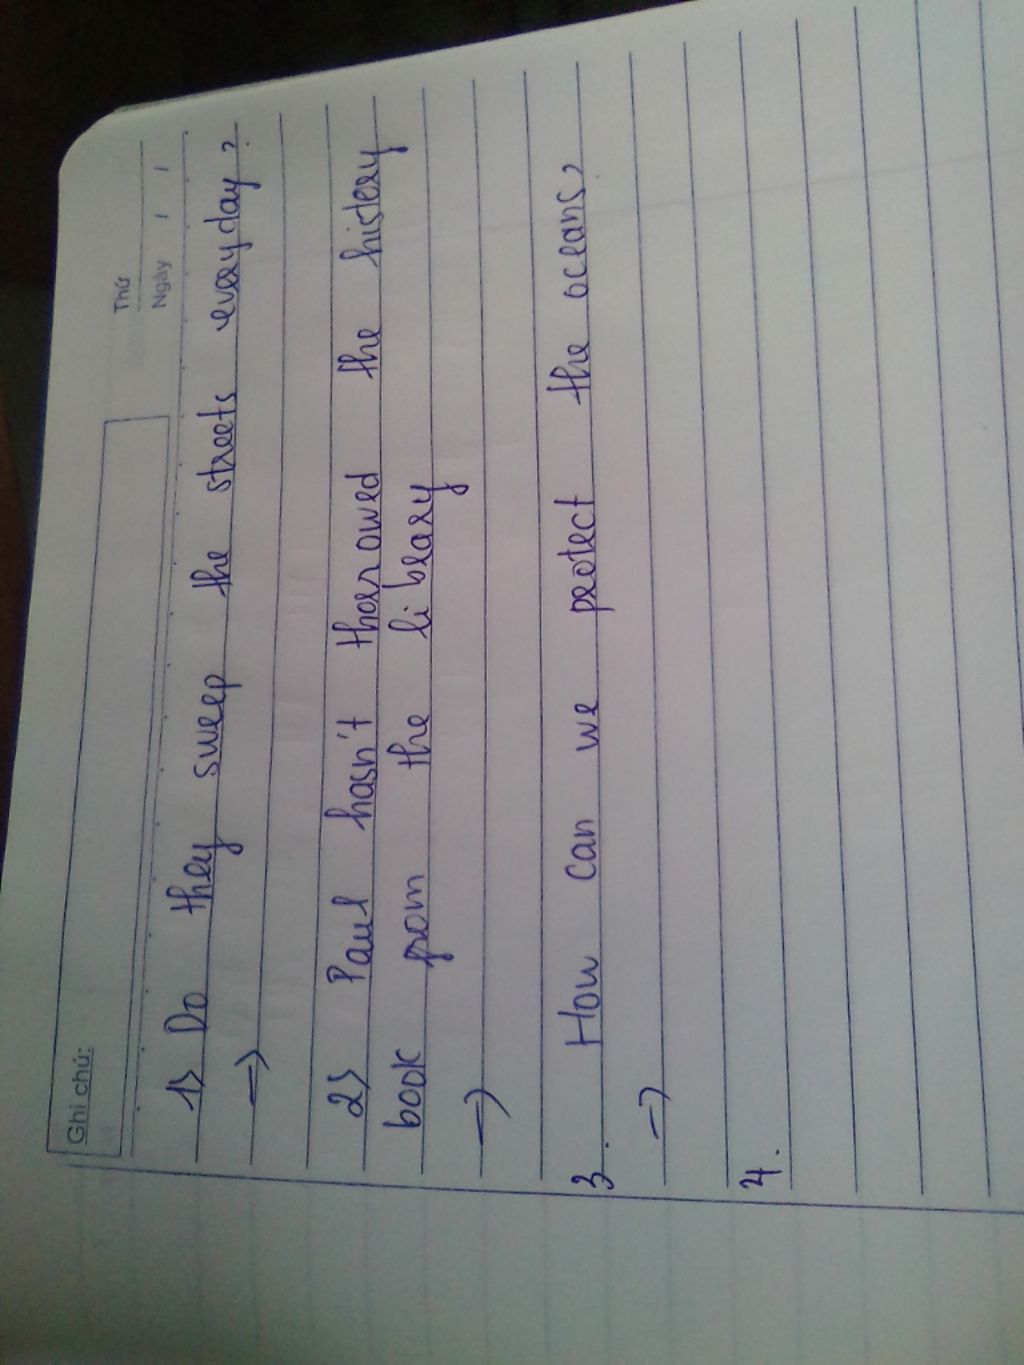 Ghi chú:
Thứ
Ngày / /
1> Do they sweep the streets everyday?
=>
2> Paul hasn't the history
book from the library
=>
3. How can we protect the oceans?
=>
4.